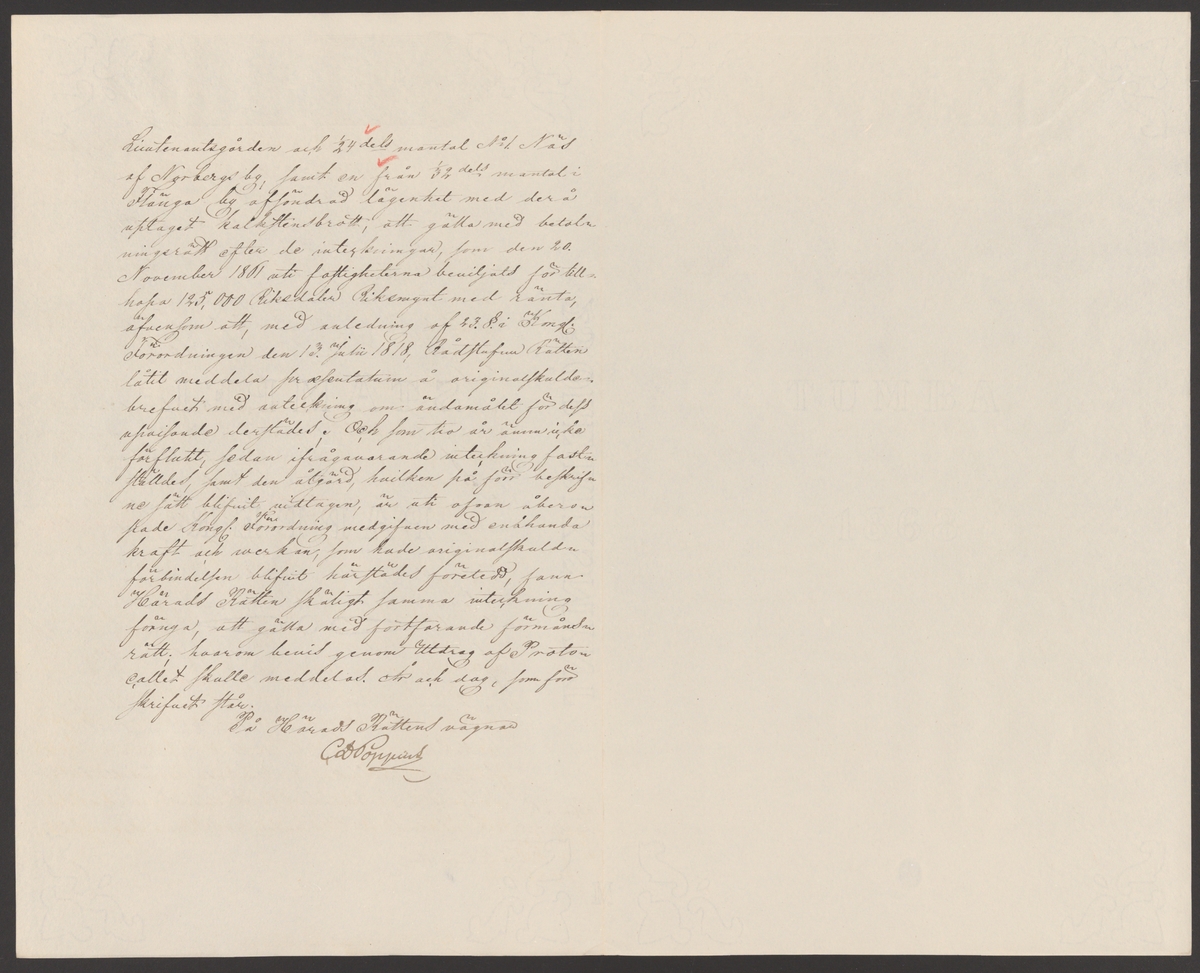 Lieutenantsgården och 1/24 dels mantal No 1. Näs
af Nyrbergs by, samt en från 1/32 dels mantal i
Flänga by afsöndrad lägenhet med derå
uptaget kalkstensbrott; att gälla med betal-
ningsrätt efter de inteckningar, som den 20.
November 1861 uti fastigheterna beviljats för till-
hopa 125,000 Riksdaler Riksmynt med ränta,
äfvensom att, med anledning af 23. §. i Kongl.
Förordningen den 13. Julii 1818, Rådstufvu Rätten
låtit meddela præsentatum å originalskulde-
brefvet med anteckning om ändamålet för dess
upvisande derstädes; Och som tio år ännu icke
förflutit, sedan ifrågavarande inteckning fast-
stäldes, samt den åtgärd, hvilken på förr beskrif-
ne sätt blifvit vidtagen, är uti ofvan åbero-
pade Kongl. Förordning medgifven med enahanda
kraft och werkan, som hade originalskuld-
förbindelsen blifvit härstädes företedd, fann
Härads Rätten skäligt samma inteckning
förnya, att gälla med fortfarande förmåns-
rätt; hvarom bevis genom Utdrag af Proto-
collet skulle meddelas. År och dag, som förr
skrifvet står.
På Härads Rättens vägnar
CD Poppius